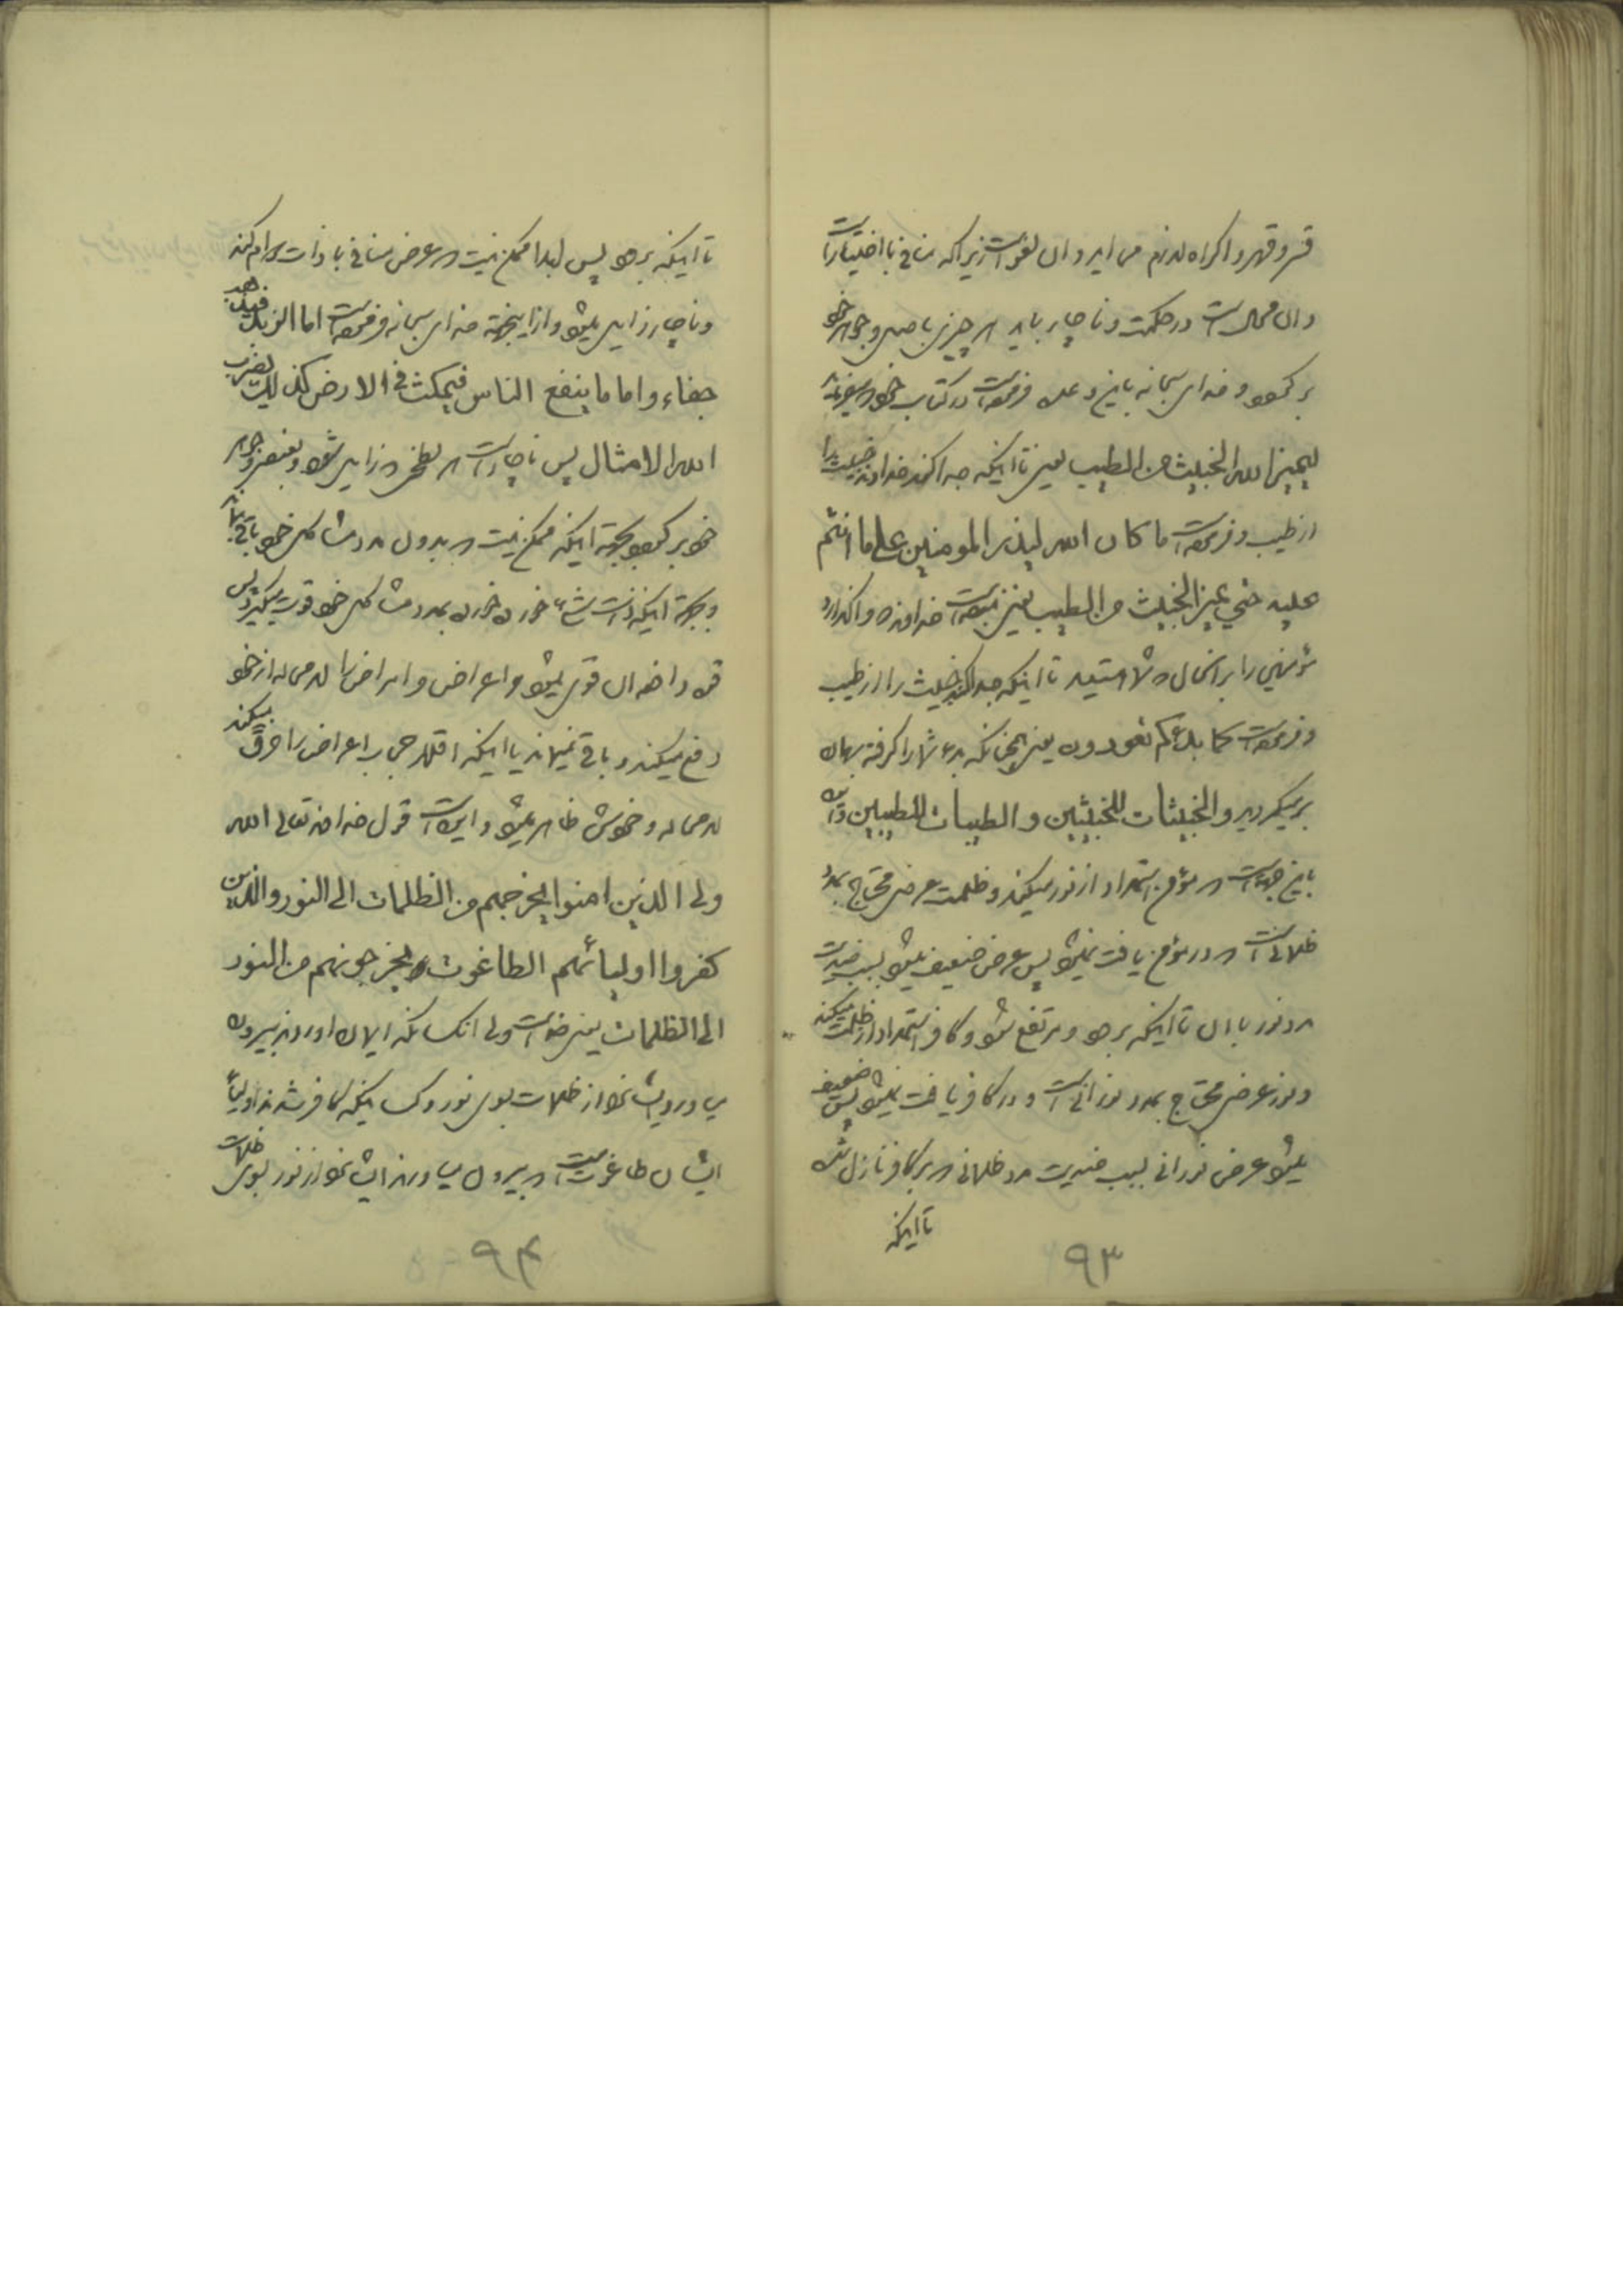 قسر و قهر و اکراه لازم می‌اید و ان لغو است زیرا که منافی با اختیار است
و ان محال است در حکمت و ناچار باید هر چیزی باصل و جوهر خود
بر گردد و خدای سبحانه باین وعده فرموده است در کتاب خود میفرماید
لیمیز الله الخبیث من الطیب یعنی تا اینکه جدا کند خداوند خبیث را
از طیب و فرموده است ما کان الله لیذر المومنین علی ما انتم
علیه حتی یمیز الخبیث من الطیب یعنی نبوده است خداوند واگذارد
مؤمنین را بر انحال که شما هستید تا اینکه جدا کند خبیث را از طیب
و فرموده است کما بدءکم تعودون یعنی همچنانکه بدء شما را کرفته بهمان
بر میکردید و الخبیثات للخبیثین و الطیبات للطیبین و این
باین جهة است که مؤمن استمداد از نور میکند و ظلمت عرضی محتاج بمدد
ظلمانی است که در مؤمن یافت نمیشود پس عرض ضعیف میشود بسبب ضدیت
مدد نور با ان تا اینکه برود و مرتفع شود و کافر استمداد از ظلمت میکند
و نور عرضی محتاج بمدد نورانی است و در کافر یافت نمیشود پس ضعیف
میشود عرض نورانی بسبب ضدیت مدد ظلمانی که بر کافر نازل شده
تا اینکه
۹۳
تا اینکه برود پس ابدا ممکن نیست که عرض منافی با ذات دوام کند
و ناچار زایل میشود و از اینجهة خدای سبحانه فرموده است اما الزبد فیذهب
جفاء و اما ما ینفع الناس فیمکث فی الارض کذلک یضرب
الله الامثال پس ناچار است که لطخ زایل شود و بعنصر و جوهر
خود بر گردد بجهة اینکه ممکن نیست که بدون مدد مشاکل خود باقی بماند
و بجهة اینکه ذات شیء خورده خورده بمدد مشاکل خود قوت میگیرد پس
قوه دافعه ان قوی میشود و اعراض و امراض را لامحاله از خود
دفع میکند و باقی نمیماند یا اینکه اقلا حجاب اعراض را خرق میکند
لامحاله و خودش ظاهر میشود و این است قول خداوند تعالی الله
ولی الذین امنوا یخرجهم من الظلمات الی النور و الذین
کفروا اولیائهم الطاغوت یخرجونهم من النور
الی الظلمات یعنی خداست ولی انکسانکه ایمان اوردند بیرون
می اورد ایشانرا از ظلمات بسوی نور و کسانیکه کافر شدند اولیاء
ایشان طاغوت است که بیرون میاورند ایشانرا از نور بسوی ظلمات
۹۴